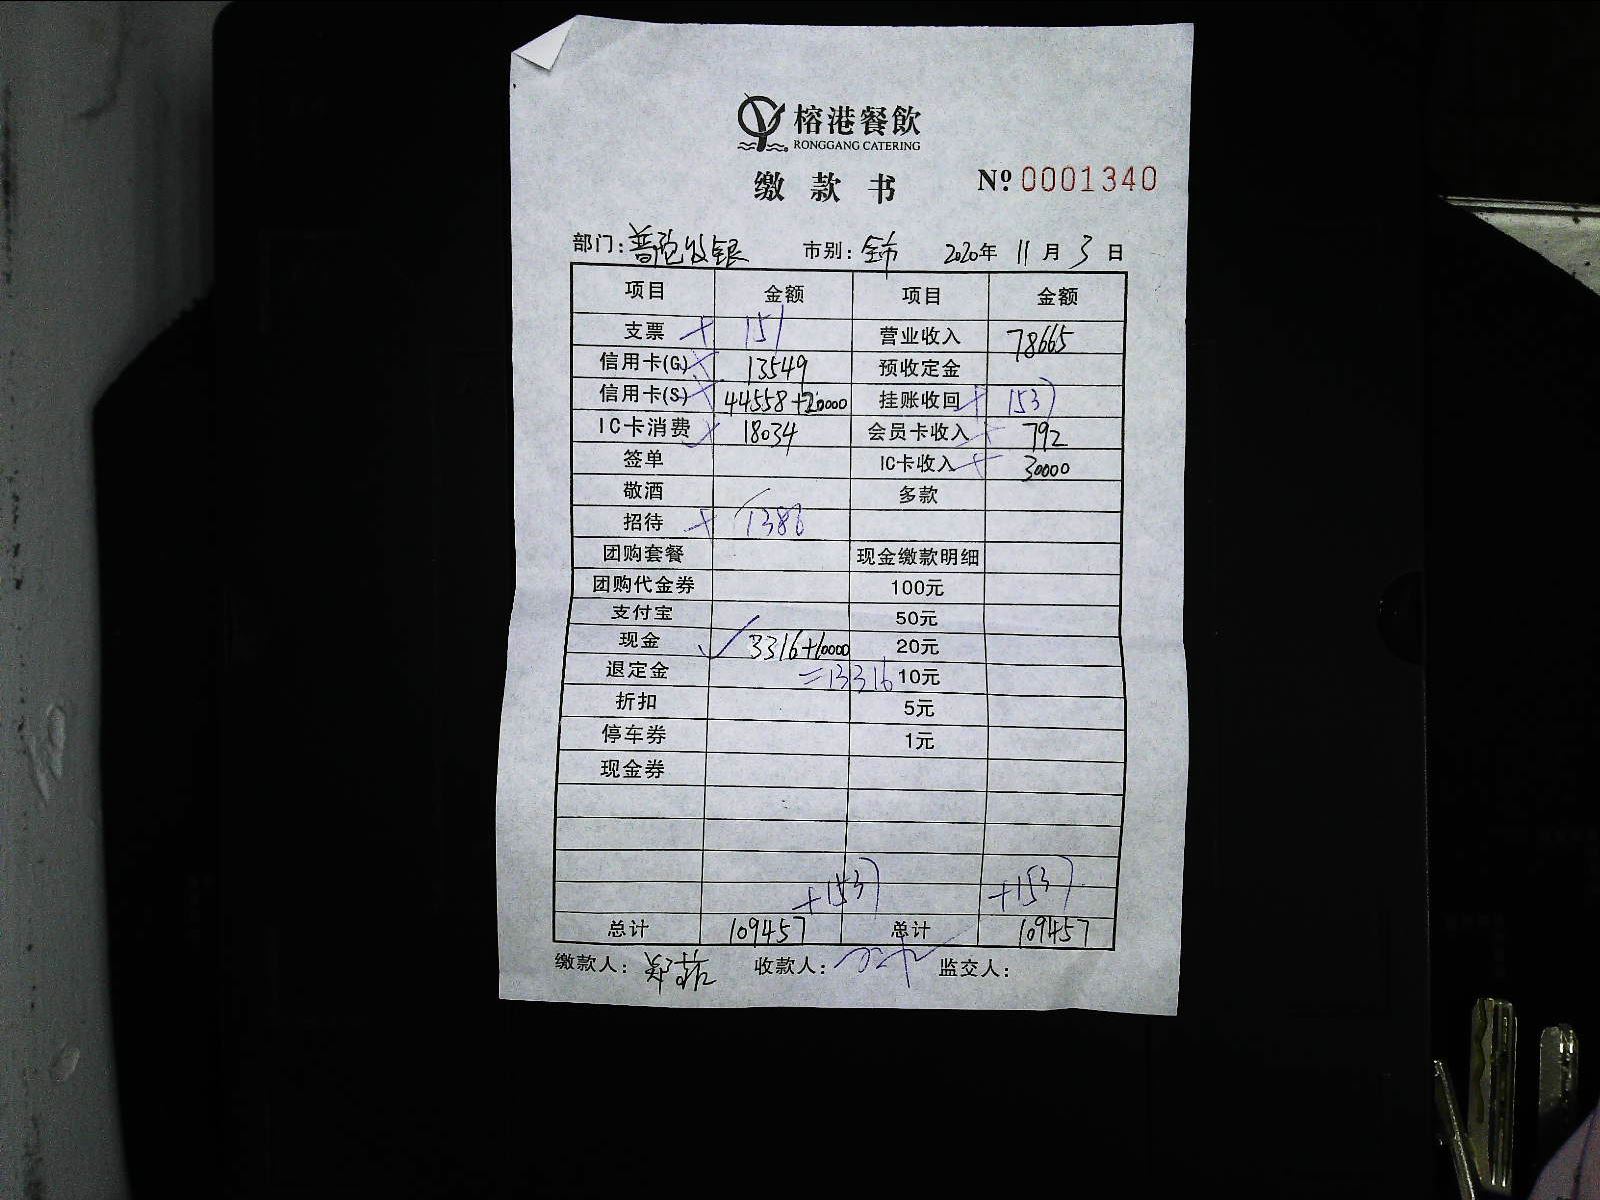 榕港餐飲
RONGGANG CATERING
缴款书 Nº 0001340
部门: 普陀收银 市别: 全市 2020年 11月 3日
项目 金额 项目 金额
支票 + 151 营业收入 78665
信用卡(G) 13549 预收定金
信用卡(S) 44558+20000 挂账收回 + 1537
IC卡消费 18034 会员卡收入 + 792
签单 IC卡收入 + 30000
敬酒 多款
招待 + 1386
团购套餐 现金缴款明细
团购代金券 100元
支付宝 50元
现金 ✓ 3316+10000 20元
退定金 =13316 10元
折扣 5元
停车券 1元
现金券
+1537 +1537
总计 109457 总计 109457
缴款人: 收款人: 监交人: